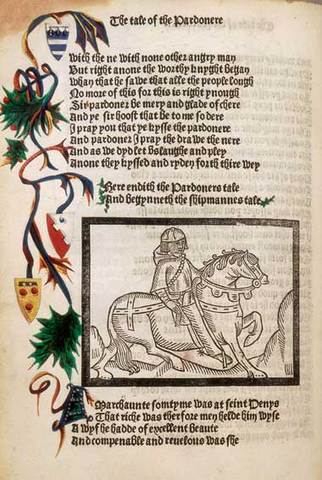 The tale of the Pardonere
With the ne with none other angry man
But right anone the worthy knyght began
Whan that he sawe that alle the people lough
No more of this for this is right ynough
Sir pardoner be mery and glade of chere
And ye sir hoost that be to me so dere
I pray you that ye kysse the pardonere
And pardoner I pray the drawe the nere
And as we dyd let us laughe and pley
Anone they kyssed and ryden forth their wey
Here endith the Pardoners tale
And begynneth the shipmannes tale
Marchaunte somtyme was at seint Denys
That riche was therfore men helde him wyse
A wyf he hadde of excellent beaute
And compenable and revelous was she